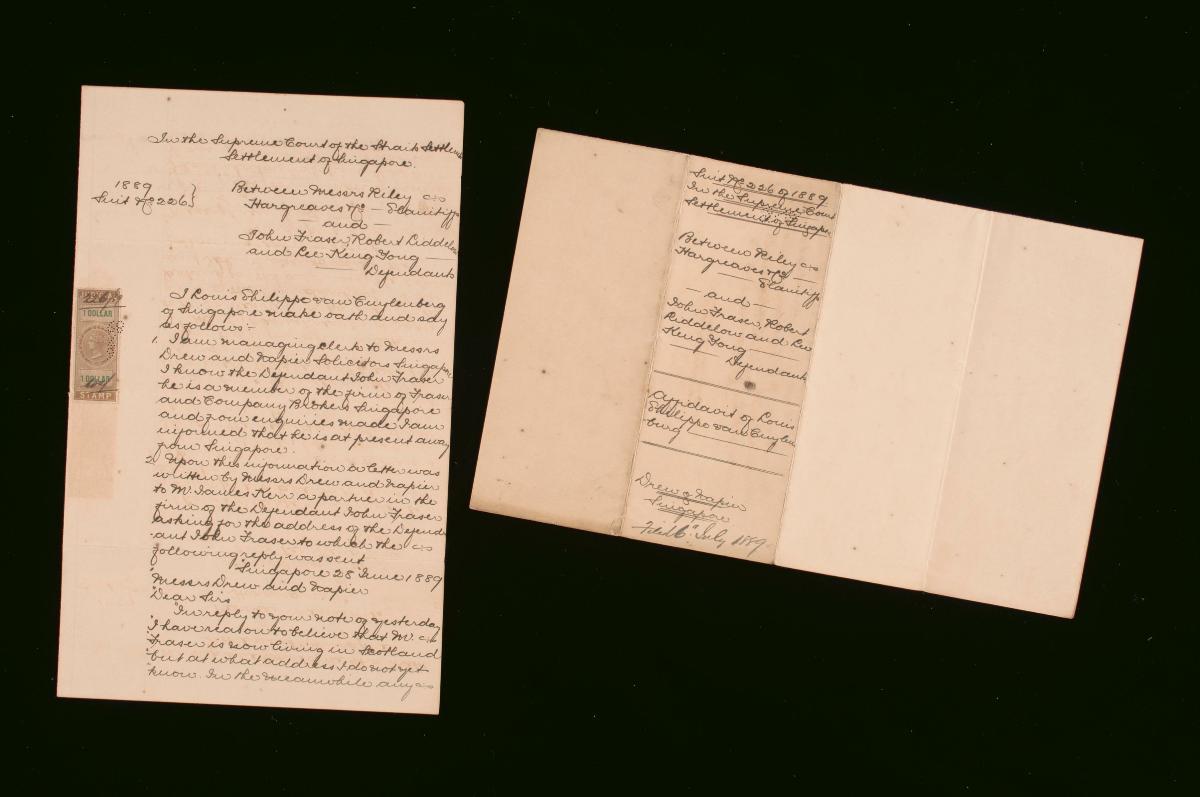 In the Supreme Court of the Straits Settlem
Settlement of Singapore.
1889
Suit No 226
Between Messrs Riley
Hargreaves & Co — Plaintiffs
— and —
John Fraser, Robert Riddelow
and Lee Keng Tong
Defendants
226/89
1 DOLLAR
1 DOLLAR
STAMP
I Louis Philippo van Cuylenberg
of Singapore make oath and say
as follows:-
1. I am managing clerk to Messrs
Drew and Napier Solicitors Singapore
I know the Defendant John Fraser
he is a member of the firm of Fraser
and Company Brokers Singapore
and from enquiries made I am
informed that he is at present away
from Singapore.
2. Upon this information a letter was
written by Messrs Drew and Napier
to Mr. James Kerr a partner in the
firm of the Defendant John Fraser
asking for the address of the Defend-
ant John Fraser to which the
following reply was sent
"Singapore 28 June 1889
"Messrs Drew and Napier
"Dear Sirs
"In reply to your note of yesterday
"I have reason to believe that Mr.
"Fraser is now living in Scotland
"but at what address I do not yet
"know. In the meanwhile any
Suit No 226 of 1889
In the Supreme Court
Settlement of Singapore
Between Riley
Hargreaves & Co
Plaintiffs
— and —
John Fraser, Robert
Riddelow and Lee
Keng Tong
Defendants
Affidavit of Louis
Philippo van Cuylen
burg
Drew & Napier
Singapore
Filed 6" July 1889